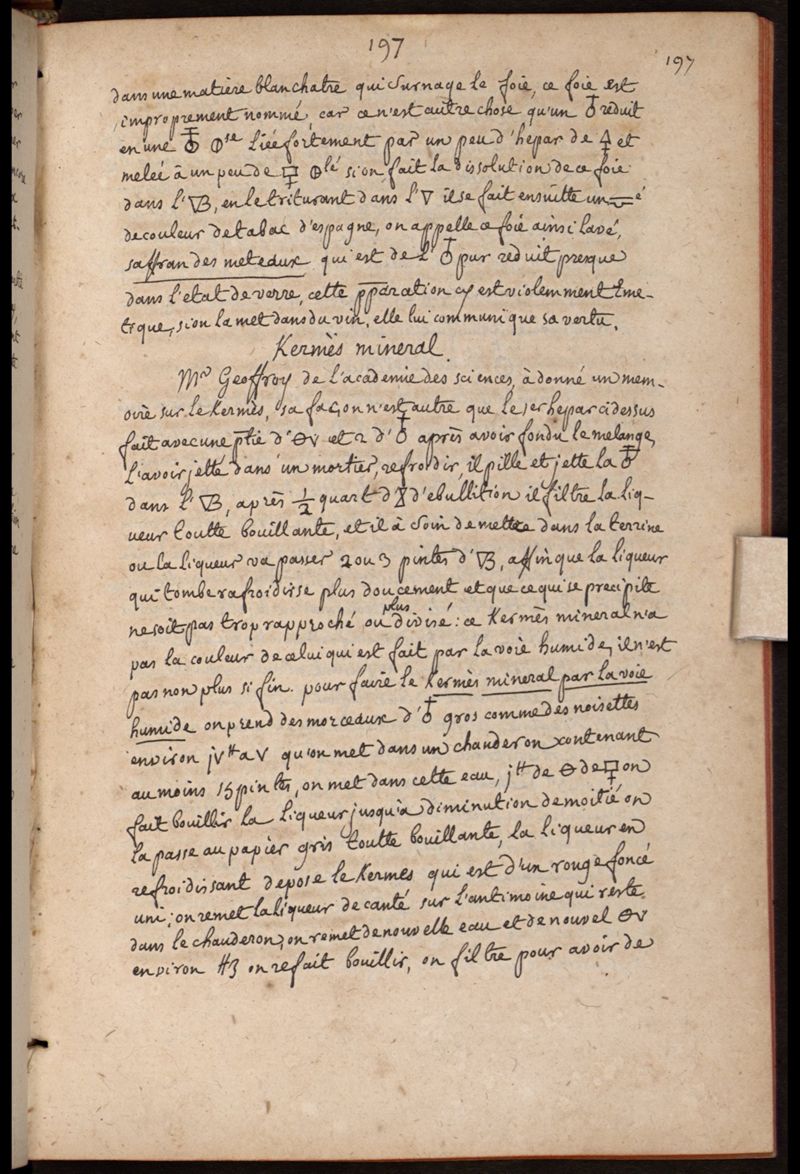 197
197
dans une matiere blanchatre qui surnage le foie, ce foie est
improprement nommé, car ce n'est autre chose qu'un ♁ reduit
en une ♁ se liée fortement par un peu d'hepar de 🜍 et
meleé à un peu de lé si on fait la dissolution de ce foie
dans l'🜄B, en le triturant dans l'🜄 il se fait ensuitte un é
de couleur de tabac d'espagne, on appelle ce foie ainsi lavé,
saffran des meteaux qui est de l'♁ pur reduit presque
dans l'etat de verre, cette pparation cy est violemment Eme-
tique, si on la met dans du vin, elle lui communique sa vertu.
Kermès mineral.
Mr Geoffroy de l'academie des sciences, à donné un mem-
oire sur le Kermès, sa façon n'est autre que le 1er hepar ci dessus
fait avec une ptie d' et 2 d'♁ après avoir fondu le melange,
l'avoir jetté dans un mortier, refroidir, il pille et jette la ♁
dans l'🜄B, après 1/2 quart d' d'ebullition il filtre la liq-
ueur toutte bouillante, et il à soin de mettre dans la terrine
ou la liqueur va passer 2 ou 3 pintes d'🜄B, affin que la liqueur
qui tombe rafroidisse plus doucement et que ce qui se precipite
ne soit pas trop rapproché ou plus divisé: ce Kermès mineral n'a
pas la couleur de celui qui est fait par la voie humide, il n'est
pas non plus si fin. pour faire le Kermès mineral par la voie
humide on prend des morceaux d'♁ gros comme des noisettes
environ jv℔ a v qu'on met dans un chauderon contenant
au moins 15 pintes, on met dans cette eau, j℔ de de on
fait bouillir la liqueur jusqu'à diminution de moitié on
la passe au papier gris toutte bouillante, la liqueur en
refroidissant depose le Kermes qui est d'un rouge foncé
uni; on remet la liqueur decanté sur l'antimoine qui reste
dans le chauderon, on remet de nouvelle eau et de nouvel
environ on refait bouillir, on filtre pour avoir de